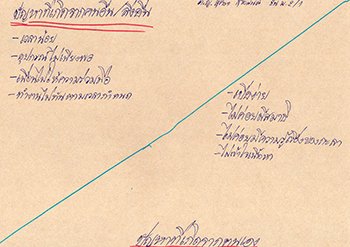 ปัญหาที่เกิดจากคนอื่น/สิ่งอื่น
- เวลาน้อย
- อุปกรณ์ไม่เพียงพอ
- เพื่อนไม่ให้ความร่วมมือ
- ทำงานไม่ทันตามเวลากำหนด
- เบื่อง่าย
- ไม่ค่อยมีสมาธิ
- ไม่ค่อยมีความรู้เรื่องของ
- ไม่เข้าใจเนื้อหา
ปัญหาที่เกิดจากตนเอง